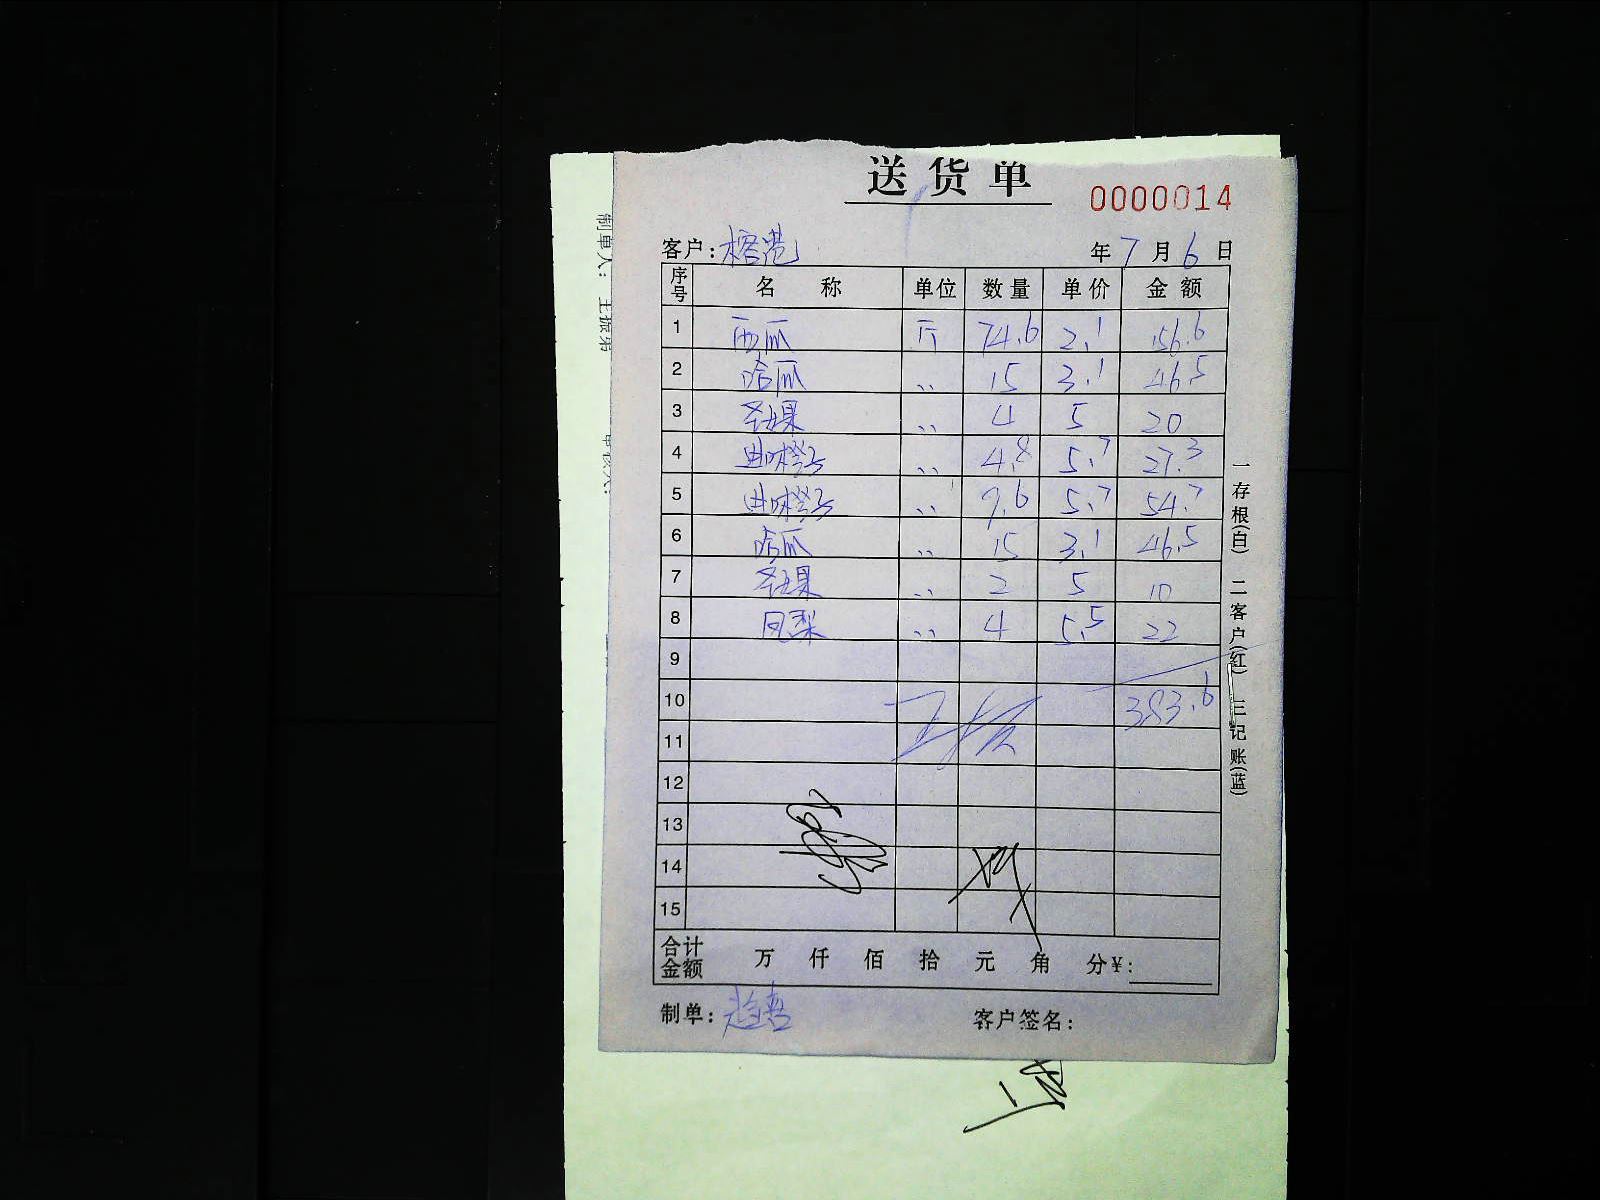 送货单
0000014
客户: 榕港 年 7 月 6 日
序号 名 称 单位 数量 单价 金额
1 西瓜 斤 74.6 2.1 156.6
2 哈瓜 〃 15 3.1 46.5
3 圣女果 〃 4 5 20
4 进口橙子 〃 4.8 5.7 27.3
5 进口橙子 〃 9.6 5.7 54.7
6 哈瓜 〃 15 3.1 46.5
7 圣女果 〃 2 5 10
8 凤梨 〃 4 5.5 22
9
10 383.6
11
12
13
14
15
合计金额 万 仟 佰 拾 元 角 分¥:
制单: 客户签名:
一存根(白) 二客户(红) 三记账(蓝)
制单人: